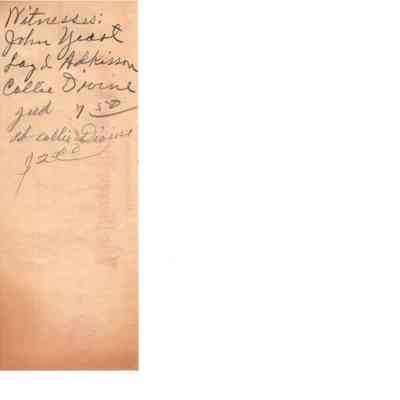 Witnesses:
John Yeast
Loyd Adkisson
Callie Divine
Jud 7 50
Callie Divine